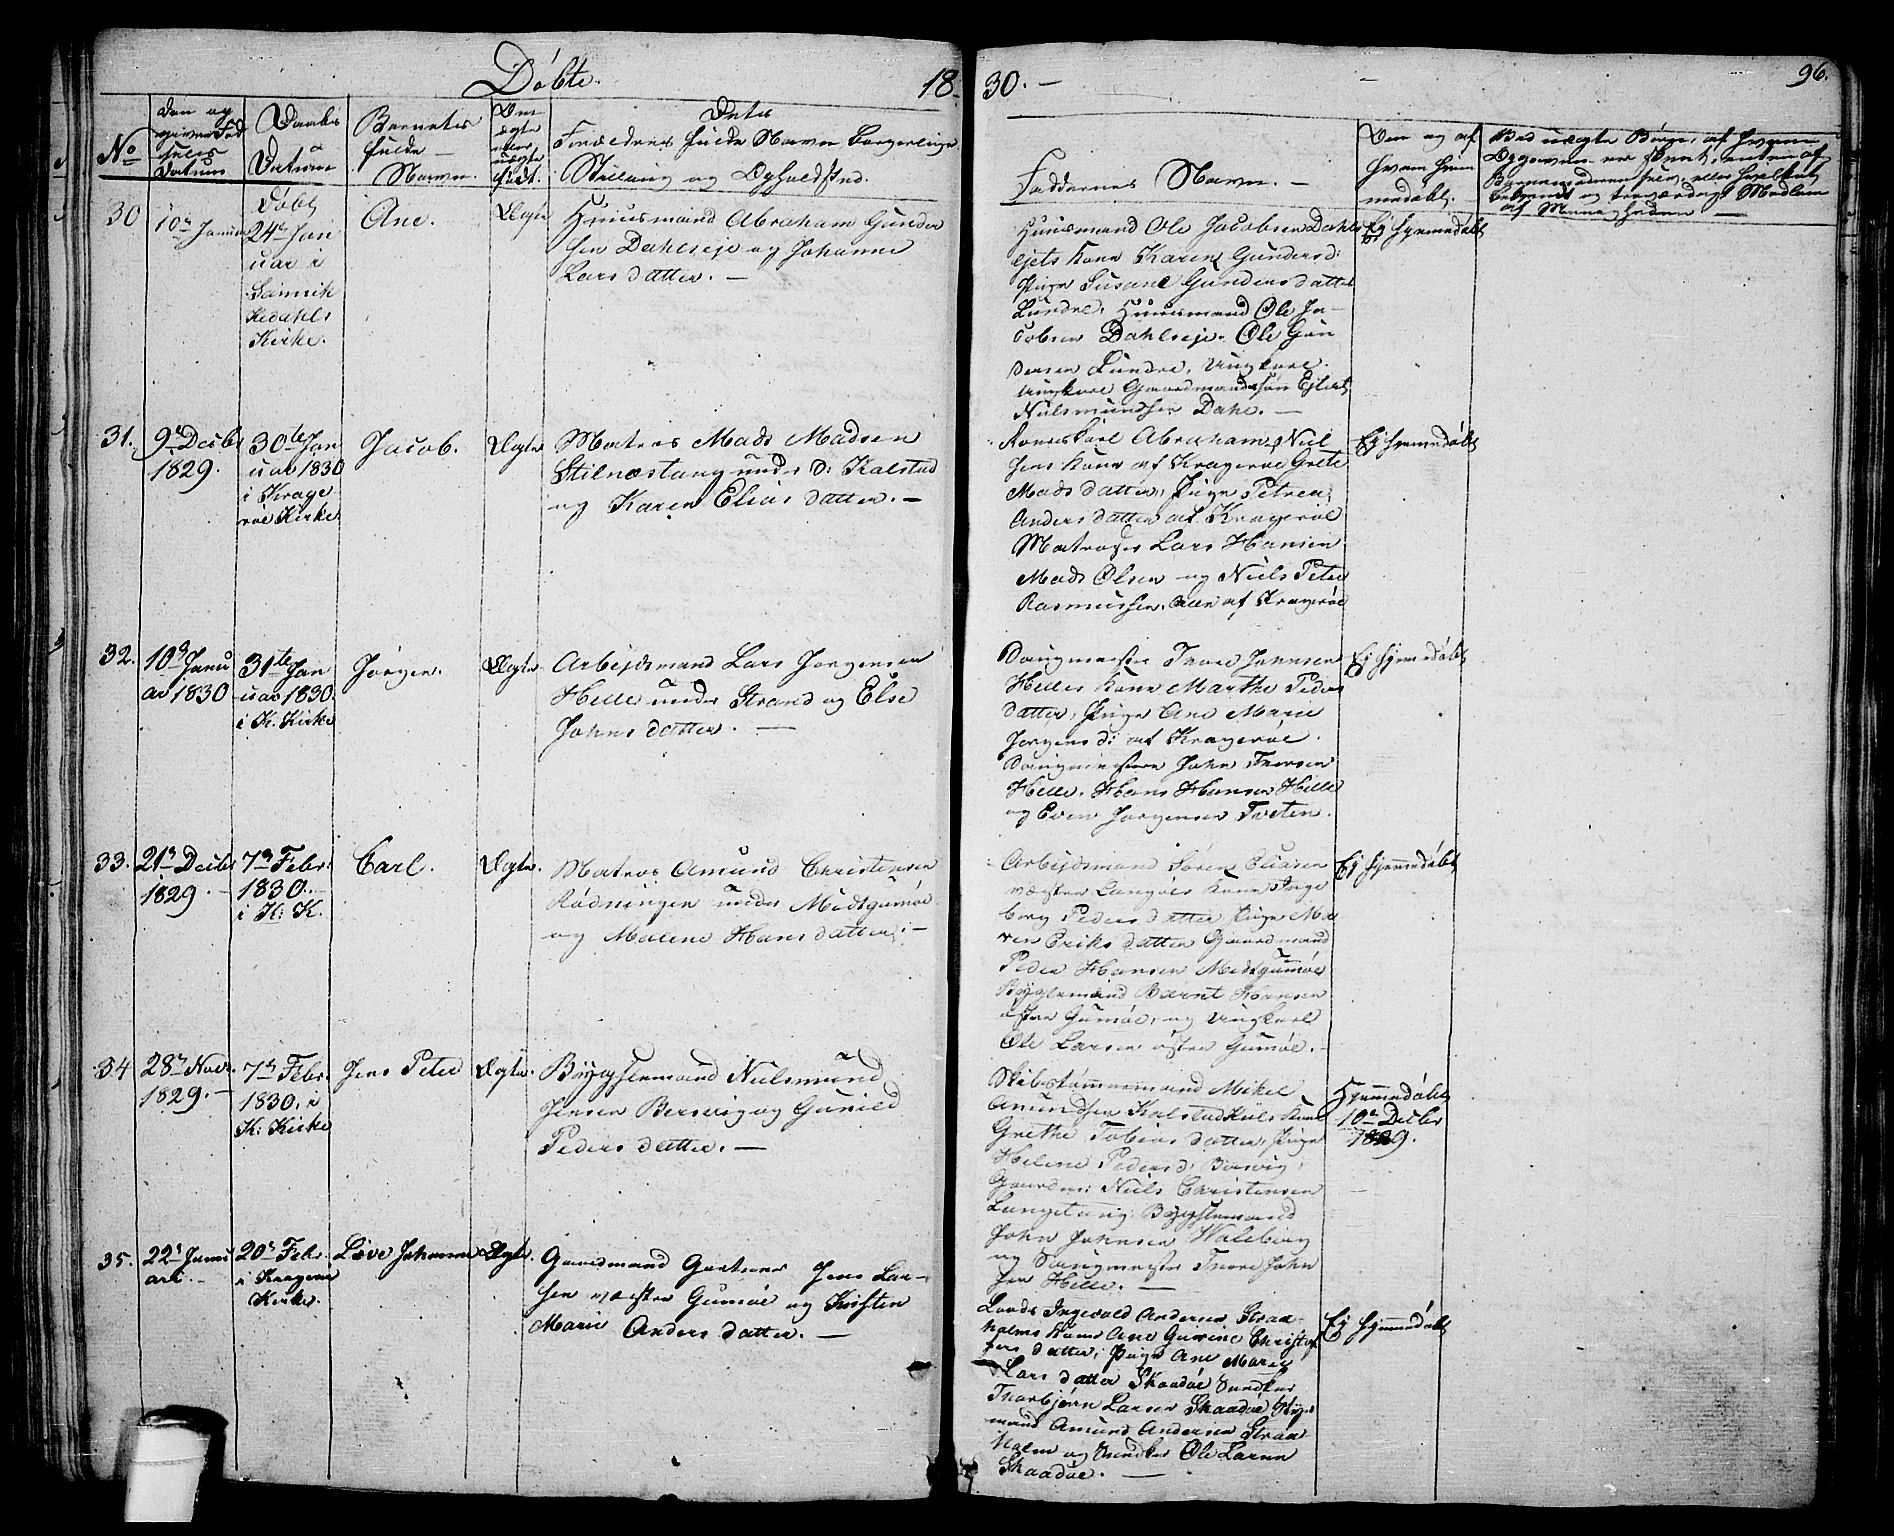 Döbte.
18
30. —
96.
No
Den og
Datum
Daabs
Datum
Barnets
fulde
Navn.
Om
ægte
eller
uægte
født.
Dets
Forældres fulde Navn Borgerlige
Stilling og Opholdsted.
Faddernes Navn. —
Om og af
hvem hjem
medøbt.
Ved uægte Børn, af hvem
30
10de Januar
Döbt
24de Jan
uar i
Sannik
kedahls
Kirke.
Ane.
Ægte
Huusmand Abraham Gunder
sen Dahlseje og Johanne
Lars datter. —
Huusmand Ole Jacobsen Dahls
ejets Kone Karen Gundersd:
Pige Susane Gunders datter
Lundre, Huusmand Ole Ja-
cobsen Dahlseje. Ole Gun
dersen Lundre, Ungkarl.
Ungkarl Gaardmandssøn Ejlert
Nielsmundsen Dahl. —
Ej hjemmedøbt
31.
9de Decbr
1829.
30te Jan
uar 1830
i Krage
røe Kirke
Jacob.
Ægte
Matros Mads Madsen
Stilnæstang under d: Kalstad
og Karen Elias datter. —
Abraham Niel
sens Kone af Kragerøe Grete
Mads datter, Pige Petren
Anders datter af Kragerøe
Matroser Lars Hansen
Mads Olsen og Niels Peter
Rasmussen, alle af Kragerøe
Ej hjemmedøbt
32.
10de Janu
ar 1830
31te Jan
uar 1830.
i K: Kirke
Jørgen.
Ægte.
Arbejdsmand Lars Jørgensen
Helle under Strand og Else
Johns datter. —
Saugmester Thore Johnsen
Helles Kone Marthe Peders
datter, Pige Ane Marie
Jørgens d: af Kragerøe.
Saugmestere John Thorsen
Helle. Hans Hansen Helle
og Even Jørgensen Tveten.
Ej hjemmedøbt
33.
21de Decbr
1829. —
7de Febr:
1830.
i K: K.
Carl.
Ægte.
Matros Amund Christensen
Rødningen under Midtgumøe
og Malene Hans datter. —
Arbejdsmand Søren
vestre Langøes Kone Inge
borg Peders datter Pige Ma
ren Eriks datter Gaardmand
Peder Hansen Midtgumøe
Bøygselmand Barnt Hansen
østre Gumøe, og Ungkarl
Ole Larsen østre Gumøe. —
Ej hjemmedøbt
34
28de Novr.
1829. —
7de Febr.
1830, i
K: Kirke
Jens Peter
Ægte.
Bøygselmand Nielsmund
Jensen Bersvig og Gunild
Peders datter. —
Skibstømmermand Mikel
Amundsen Kalstadkiils Kone
Grethe Tobias datter, Pige
Helene Peders d: Bærvig,
Gaardm: Niels Christensen
Langetang. Bøygselmand
John Johnsen Waleberg
og Saugmester Thore John
sen Helle. —
Hjemmedøbt
10de Decbr
1829.
35.
22de Janu
ari. —
20de Febr.
i Kragerøe
Kirke.
Love Johanne
Ægte.
Gaardmand Gartner Jens Lar-
sen vestre Gumøe og Kirsten
Marie Anders datter. —
Lods Ingevald Andersen Straa-
holms Kone Ane Gurine Christof
fers datter, Pige Ane Marie
Lars datter Skaadøe
Thorbjørn Larsen Skaadøe
mand Amund Andersen Straa
holm og Ole Larsen
Skaadøe. —
Ej hjemmedøbt